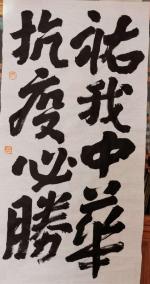 祐我中華
抗疫必勝